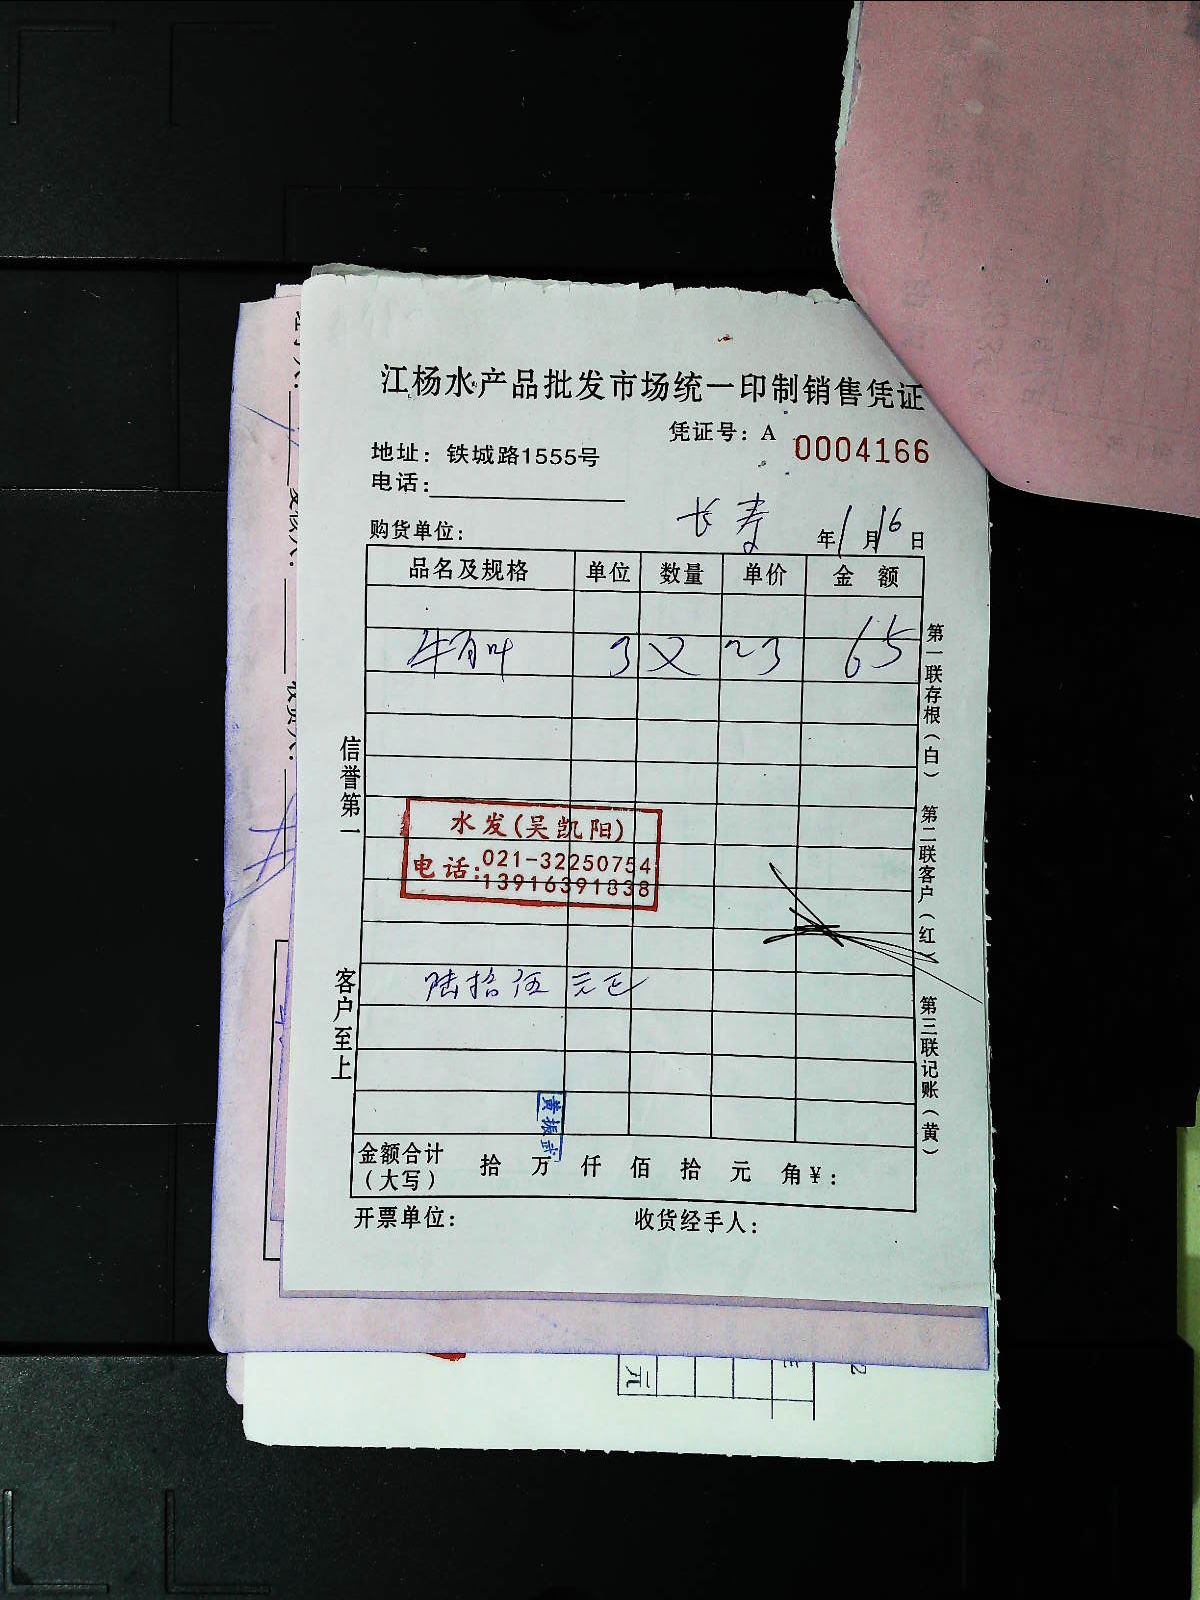 江杨水产品批发市场统一印制销售凭证
凭证号：A 0004166
地址：铁城路1555号
电话：
长寿
购货单位： 年1月16日
品名及规格 单位 数量 单价 金 额
牛百叶 3 23 65
信誉第一
客户至上
水发(吴凯阳)
电话：021-32250754
13916391838
陆拾伍元正
黄振武
金额合计（大写） 拾 万 仟 佰 拾 元 角￥：
开票单位： 收货经手人：
第一联存根（白） 第二联客户（红） 第三联记账（黄）
元